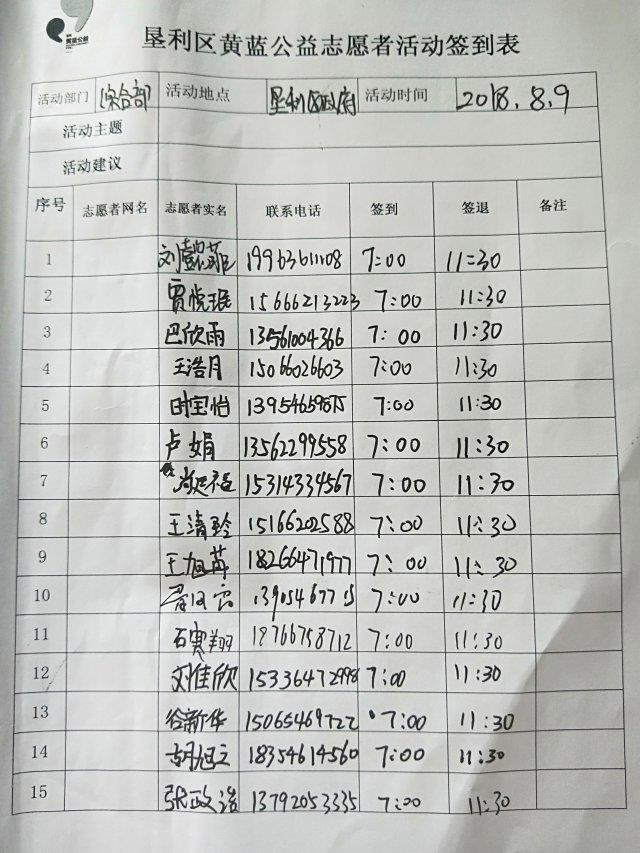 黄蓝公益
垦利区黄蓝公益志愿者活动签到表
活动部门 综合部 活动地点 垦利区政府 活动时间 2018.8.9
活动主题
活动建议
序号 志愿者网名 志愿者实名 联系电话 签到 签退 备注
1 刘懿菲 19963611108 7:00 11:30
2 贾悦珉 15666213223 7:00 11:30
3 巴欣雨 13561004366 7:00 11:30
4 王浩月 15066026603 7:00 11:30
5 时宝怡 13954659875 7:00 11:30
6 卢娟 13562299558 7:00 11:30
7 15314334567 7:00 11:30
8 王清玲 15166202588 7:00 11:30
9 王旭苒 18266471977 7:00 11:30
10 7:00 11:30
11 石寒翔 18766758712 7:00 11:30
12 刘佳欣 15336472998 7:00 11:30
13 谷新华 15065469722 7:00 11:30
14 胡旭立 18354614560 7:00 11:30
15 张政浩 13792053335 7:00 11:30